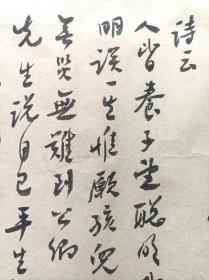 詩云
人皆養子望聰明
明誤一生惟願孩兒
無災無難到公卿
先生說自己平生